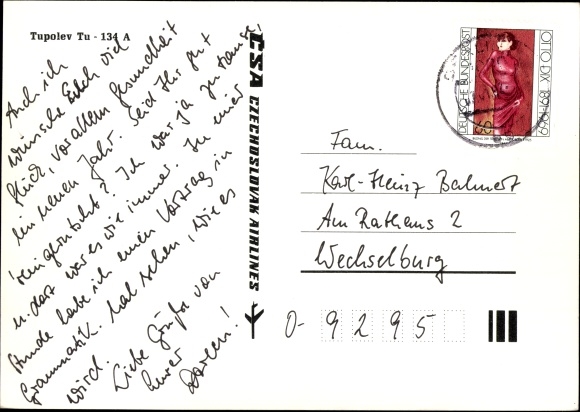 Tupolev Tu - 134 A
Auch ich
wünsche Euch viel
Glück, vor allem Gesundheit
im neuen Jahr. Seid Ihr gut
reingerutscht? Ich war ja zu Hause,
u. dort war es wie immer. In einer
Stunde habe ich einen Vortrag in
Grammatik. Mal sehen, wie es
wird.
Liebe Grüße von
Eurer
ČSA CZECHOSLOVAK AIRLINES
DEUTSCHE BUNDESPOST
OTTO DIX 1891-1969
Fam.
Karl-Heinz Bahnert
Am Rathaus 2
Wechselburg
O- 9295